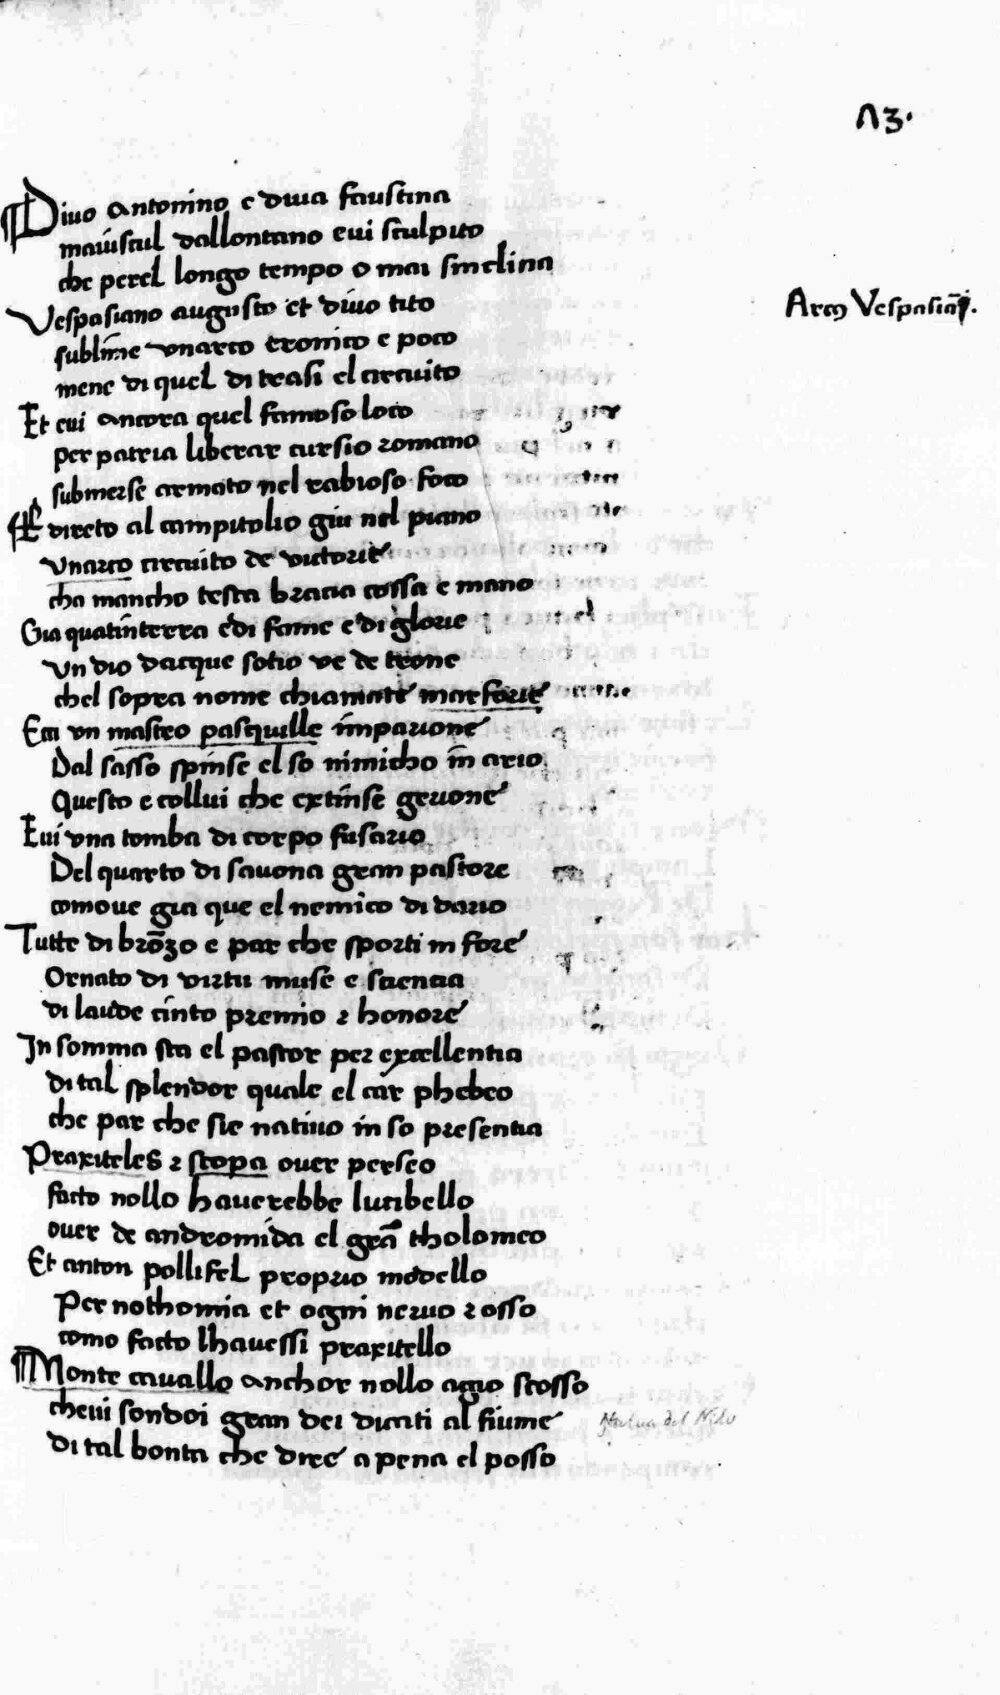 Divo Antonino e diva faustina
maiuscul dallontano evi sculpito
che perel longo tempo o mai sinclina
Arco Vespasia
Vespasiano augusto et divo tito
sublime unarco tronico e poco
mene di quel di trasi el circuito
Et evi ancora quel famoso loco
per patria liberar cursio romano
submerse armato nel rabioso foco
directo al campitolio giu nel piano
unarco circuito de victorie
cha mancho testa bracia cossa e mano
Gia quatinterra e di fame e di glorie
un dio dacque sotto ve de trone
chel sopra nome chiamate marforie
Ecci un mastro pasquille imparione
Dal sasso spinse el so nimicho in ario
Questo e collui che extinse gerione
Evi una tomba di corpo fusario
Del quarto di savona gran pastore
comove gia que el nemico di dario
Tutte di brōzo e par che sporti in fore
Ornato di virtu muse e sciencia
di laude cinto premio 2 honore
In somma sta el pastor per excellentia
di tal splendor quale el car phebeo
che par che sie nativo in so presentia
Praxiteles 2 scopa over perseo
facto nollo haverebbe luribello
over de andromida el grā tholomeo
Et anton pollifel proprio modello
Per nothomia et ogni nervo 2 osso
como facto lhavessi praxitello
Monte cavallo anchor nollo agio scosso
chevi son doi gran dei dicati al fiume
del Nilo
di tal bonta che dire apena el posso